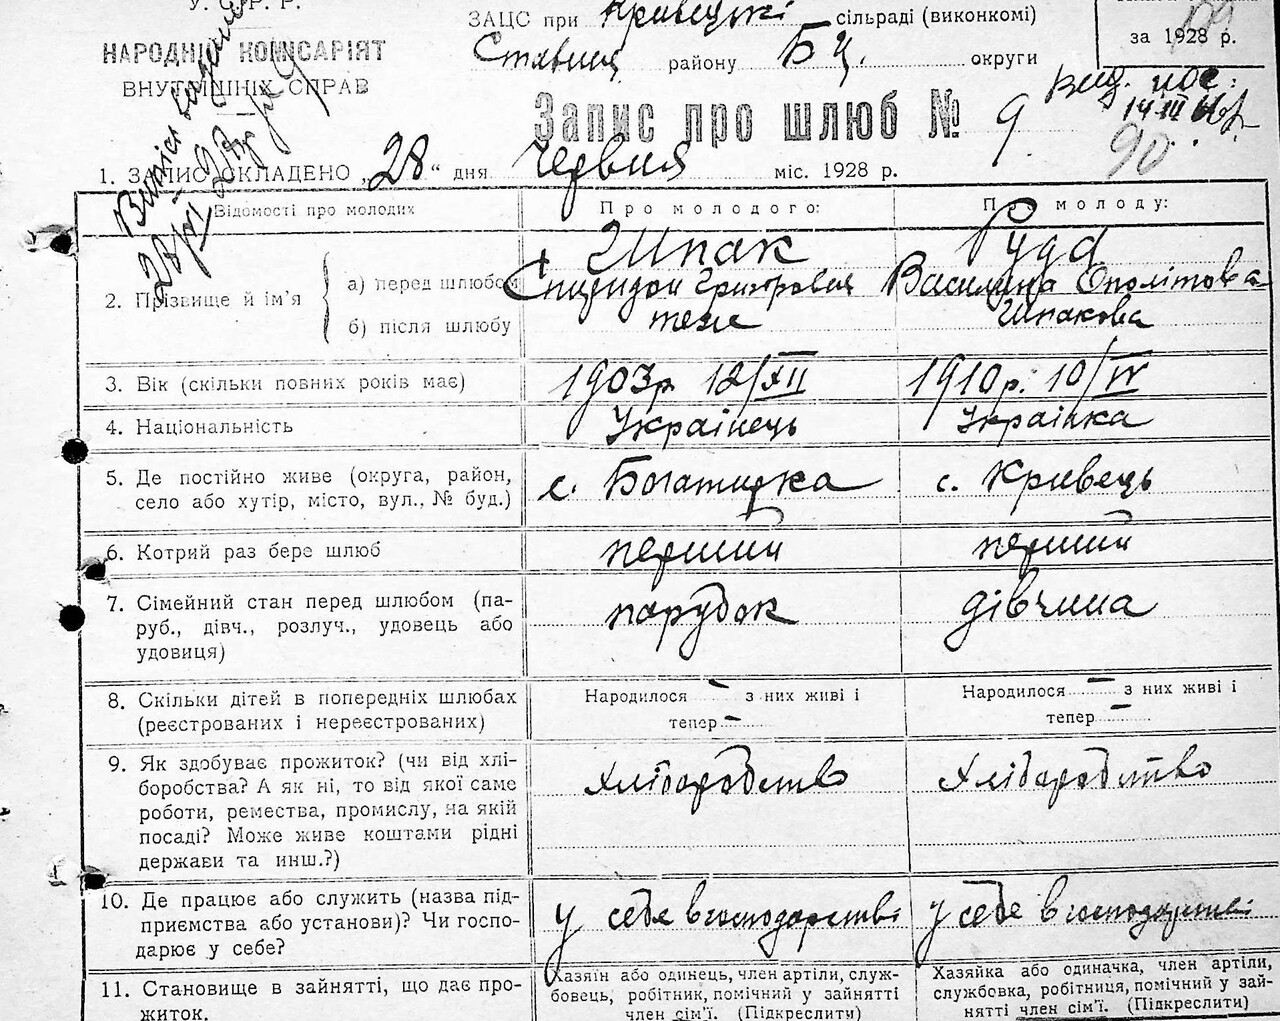 У. С. Р. Р.
НАРОДНІЙ КОМІСАРІЯТ
ВНУТРІШНІХ СПРАВ
ЗАЦС при Кривецькі сільраді (виконкомі)
Ставищ району Б Ц. округи
за 1928 р.
Запис про шлюб № 9
14 III
90
1. ЗАПИС СКЛАДЕНО „28“ дня Червня міс. 1928 р.
Відомості про молодих
Про молодого:
Про молоду:
2. Прізвище й ім’я
а) перед шлюбом
б) після шлюбу
Шпак
Спиридон Григорович
теж
Руда
Василина Ополітова
Шпакова
3. Вік (скільки повних років має)
1903р 12/XII
1910р. 10/IV
4. Національність
Українець
Українка
5. Де постійно живе (округа, район,
село або хутір, місто, вул., № буд.)
с. Богатирка
с. Кривець
6. Котрий раз бере шлюб
перший
перший
7. Сімейний стан перед шлюбом (па-
руб., дівч., розлуч., удовець або
удовиця)
парубок
дівчина
8. Скільки дітей в попередніх шлюбах
(реєстрованих і нереєстрованих)
Народилося – з них живі і
тепер –
Народилося – з них живі і
тепер –
9. Як здобуває прожиток? (чи від хлі-
боробства? А як ні, то від якої саме
роботи, ремества, промислу, на якій
посаді? Може живе коштами рідні
держави та инш.?)
Хліборобство
Хліборобство
10. Де працює або служить (назва під-
приємства або установи)? Чи госпо-
дарює у себе?
у себе в господарстві
у себе в господарстві
11. Становище в зайнятті, що дає про-
житок.
Хазяїн або одинець, член артіли, служ-
бовець, робітник, помічний у зайнятті
член сім’ї. (Підкреслити)
Хазяйка або одиначка, член артіли,
службовка, робітниця, помічний у зай-
нятті член сім’ї. (Підкреслити)